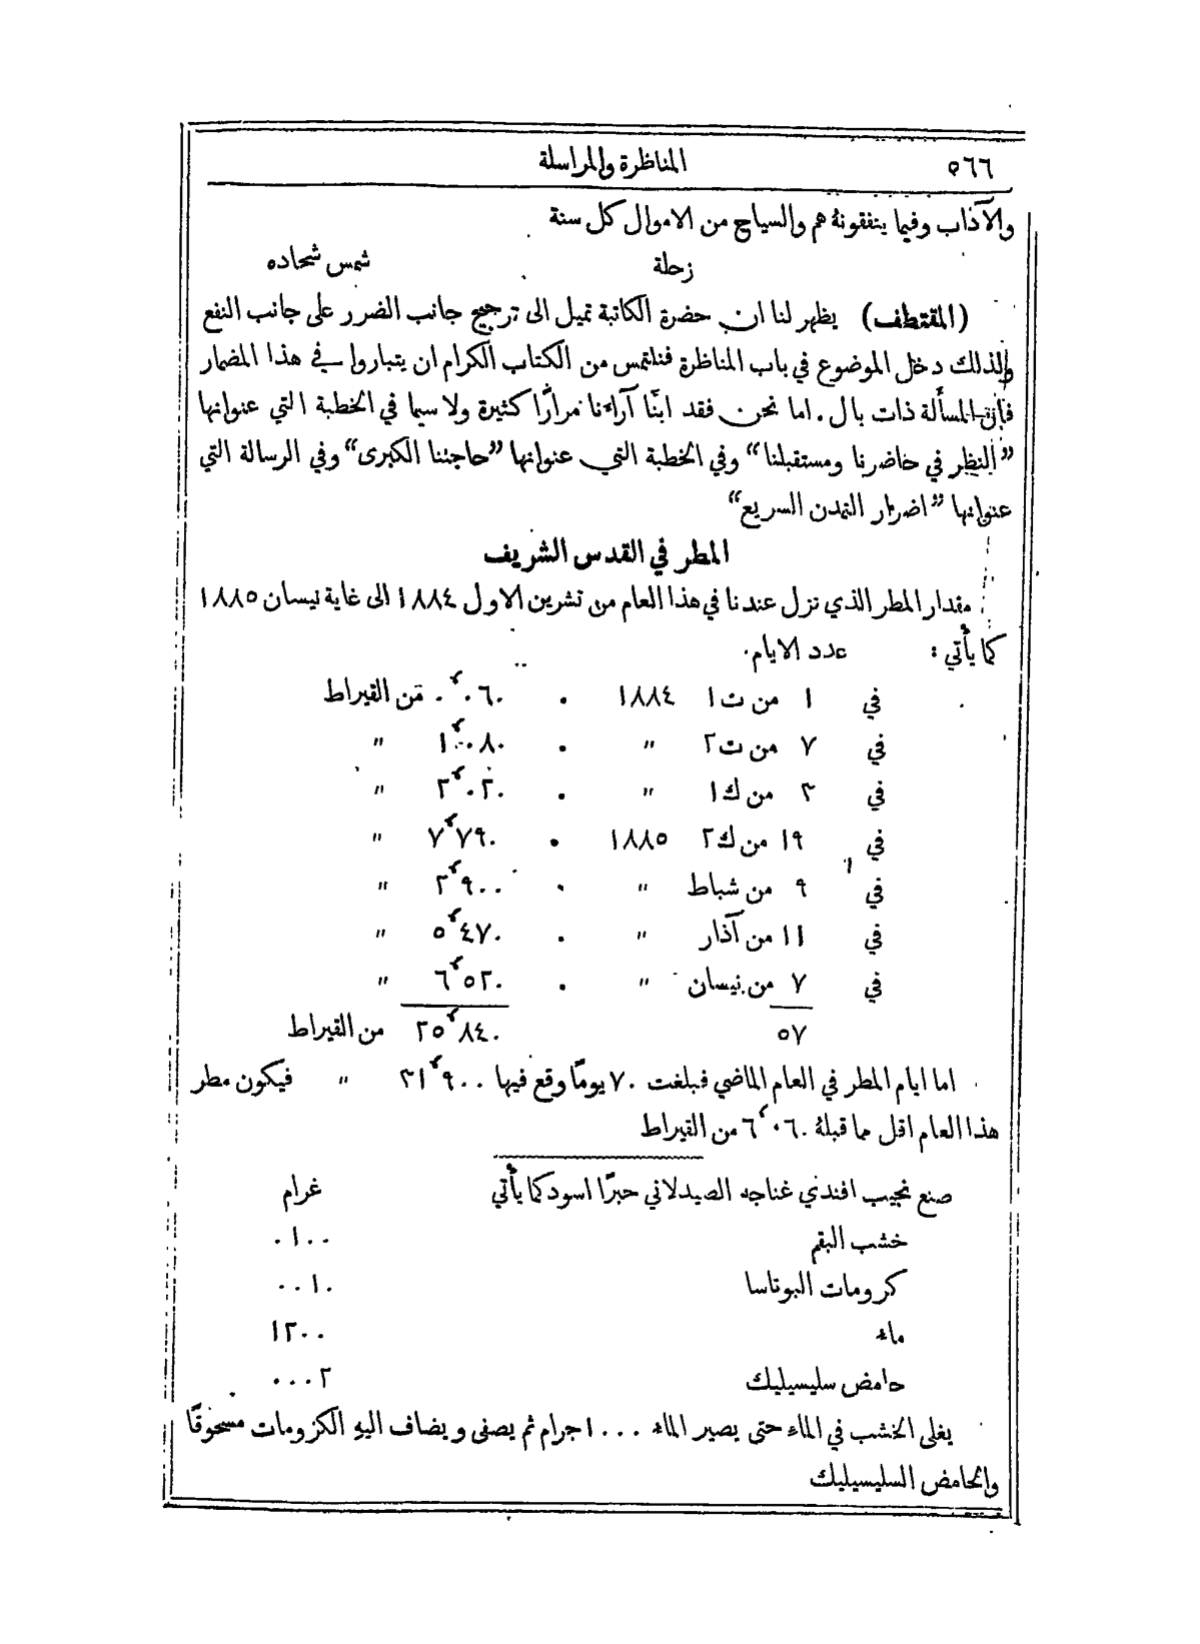 ٥٦٦ المناظرة والمراسلة
والآداب وفيما ينفقونهُ هم والسياح من الاموال كل سنة
زحلة شمس شحاده
(المقتطف) يظهر لنا ان حضرة الكاتبة تميل الى ترجيح جانب الضرر على جانب النفع
ولذلك دخل الموضوع في باب المناظرة فنلتمس من الكتاب الكرام ان يتباروا في هذا المضمار
فان المسألة ذات بال. اما نحن فقد ابنّا آراءنا مرارًا كثيرة ولاسيما في الخطبة التي عنوانها
”النظر في حاضرنا ومستقبلنا“ وفي الخطبة التي عنوانها ”حاجتنا الكبرى“ وفي الرسالة التي
عنوانها ”اضرار التمدن السريع“
المطر في القدس الشريف
مقدار المطر الذي نزل عندنا في هذا العام من تشرين الاول ١٨٨٤ الى غاية نيسان ١٨٨٥
كما يأتي : عدد الايام.
في ١ من ت١ ١٨٨٤ . ٠٬٠٦٠ من القيراط
في ٧ من ت٢ ״ . ١٬٠٨٠ ״
في ٣ من ك١ ״ . ٢٬٠٢٠ ״
في ١٩ من ك٢ ١٨٨٥ . ٧٬٧٩٠ ״
في ٩ من شباط ״ . ٢٬٩٠٠ ״
في ١١ من آذار ״ . ٥٬٤٧٠ ״
في ٧ من نيسان ״ . ٦٬٥٢٠ ״
٥٧ ٢٥٬٨٤٠ من القيراط
اما ايام المطر في العام الماضي فبلغت ٧٠ يومًا وقع فيها ٣١٬٩٠٠ ״ فيكون مطر
هذا العام اقل مما قبلهُ ٦٬٠٦٠ من القيراط
صنع نجيب افندي غناجه الصيدلاني حبرًا اسود كما يأتي غرام
خشب البقم ٠١٠٠
كرومات البوتاسا ٠٠١٠
ماء ١٢٠٠
حامض سليسيليك ٠٠٠٢
يغلى الخشب في الماء حتى يصير الماء ١٠٠٠ جرام ثم يصفى ويضاف اليهِ الكرومات مسحوقًا
والحامض السليسيليك